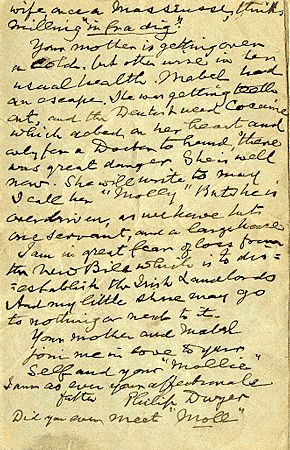 wife once a Masseusse, thinks
willing "in fra dig".
Your mother is getting over
a Cold, but otherwise in her
usual health. Mabel had
an escape. She was getting teeth
out, and the Dentist used Cocaine
which acted on her heart and
only for a Doctor to hand, there
was great danger. She is well
now. She will write to
I call her "Molly" But she is
overdriven, as we have but
one servant, and a large house
I am in great fear of loss from
the New Bill which is to dis=
=establish the Irish Landlords
And my little share may go
to nothing or next to it.
Your mother and Mabel
join me in love to your
Self and your "Mollie"
I am as ever your affectionate
father Philip Dwyer
Did you ever meet "Moll"